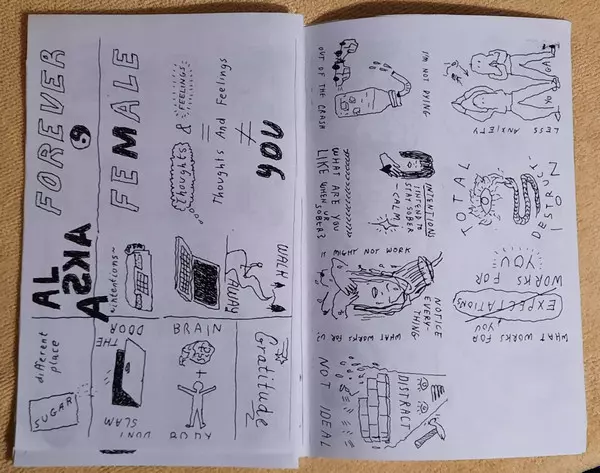 FOREVER
AL
ASKA
different
place
SUGAR
FEMALE
*intentions~
DON'T
SLAM
THE
DOOR
Thoughts & FEELINGS
=
Thoughts And Feelings
≠
YOU
BRAIN
WALK
AWAY
Gratitude
YO GA
LESS ANXIETY
I'M NOT DYING
OUT OF THE CRASH
TOTAL
DESTRUCTION
INTENTION:
INTEND TO
STAY SOBER
-CALM
WHAT ARE YOU
LIKE WHEN UR
SOBER?
WHAT WORKS FOR
YOU
EXPECTATIONS
WORKS FOR
YOU
* MIGHT NOT WORK
NOTICE
EVERY-
THING
WHAT WORKS FOR U?
DISTRACT
NOT IDEAL